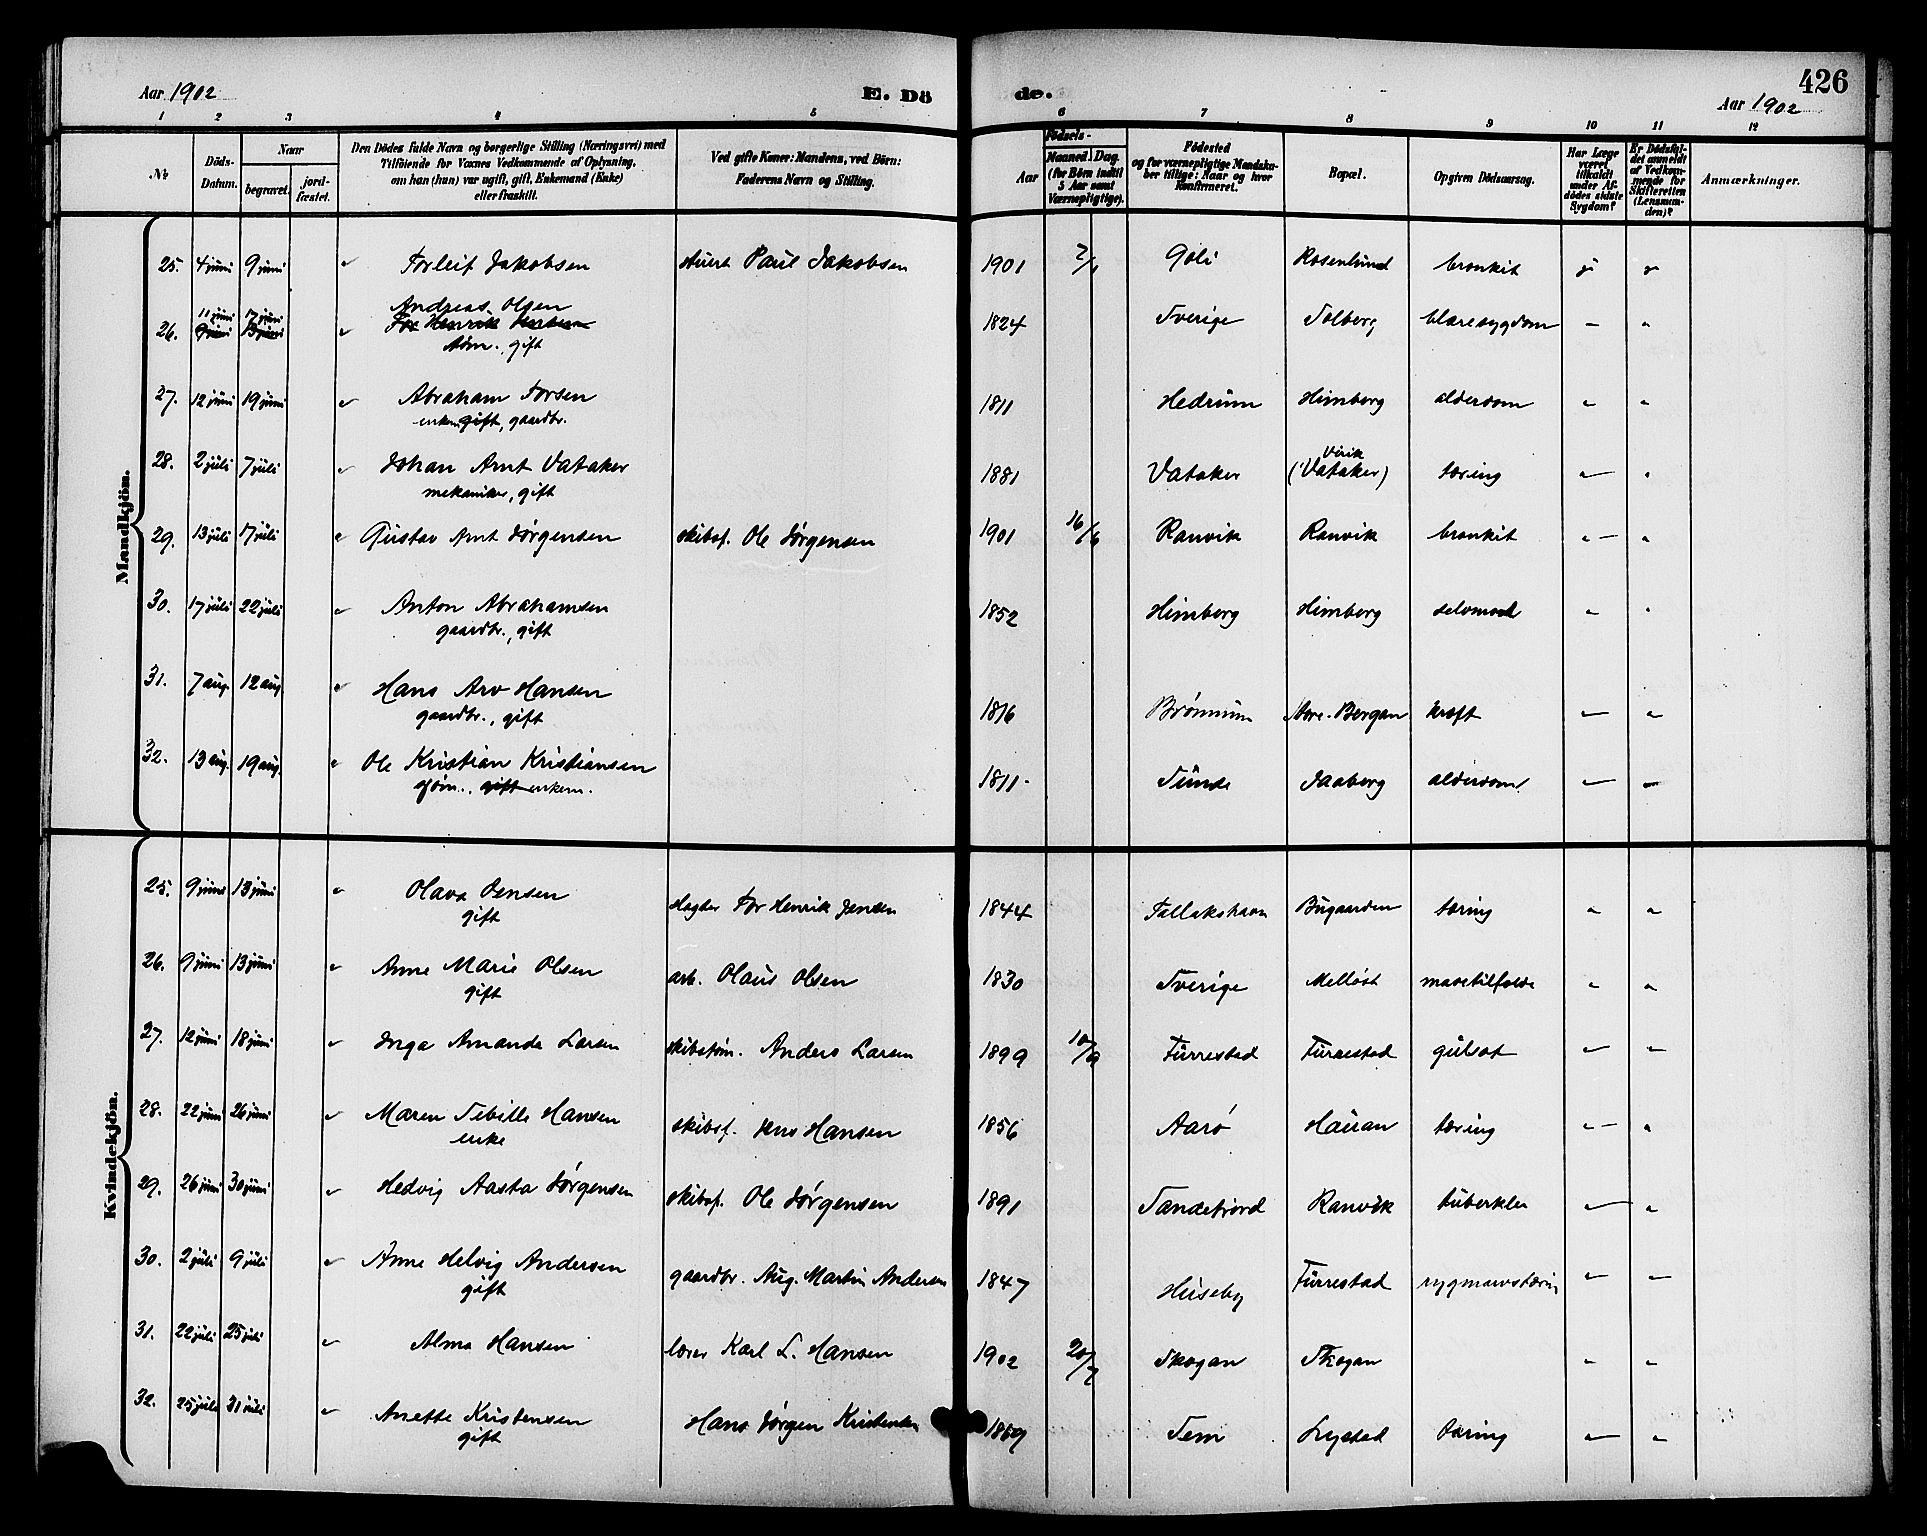 426
Aar 1902
E. Dö
de.
Aar 1902
1 2 3 4 5 6 7 8 9 10 11 12
No
Döds-Datum.
Naar
begravet.
jord-fæstet.
Den Dödes fulde Navn og borgerlige Stilling (Næringsvei) med
Tilföiende for Voxnes Vedkommende af Oplysning,
om han (hun) var ugift, gift, Enkemand (Enke)
eller fraskilt.
Ved gifte Koner: Mandens, ved Börn:
Faderens Navn og Stilling.
Födsels-
Aar
Maaned. Dag.
(for Börn indtil
5 Aar samt
Værnepligtige).
Födested
og for værnepligtige Mandska-
ber tillige: Naar og hvor
Konfirmeret.
Bopæl.
Opgiven Dödsaarsag.
Har Læge
været
tilkaldt
under Af-
dödes sidste
Sygdom?
Er Dödsfal-
det anmeldt
af Vedkom-
mende for
Skifteretten
(Lensman-
den)?
Anmærkninger.
Mandkjön.
25. 4 juni 9 juni " Torleif Jakobsen stuert Paul Jakobsen 1901 2/1 Goli Rosenlund bronkit
11 juni 17 juni Andreas Olsen
26. 9 juni 13 juni " Tor Henrik Jensen 1824 Sverige Solberg blæresygdom - "
tøm., gift
27. 12 juni 19 juni " Abraham Torsen 1811 Hedrum Himberg alderdom " "
enkem gift, gaardbr.
28. 2 juli 7 juli " Johan Arnt Vataker 1881 Vataker Virik (Vataker) tæring " "
mekaniker, gift
29. 13 juli 17 juli " Gustav Arnt Jørgensen skibsf. Ole Jørgensen 1901 16/6 Ranvik Ranvik bronkit " "
30. 17 juli 22 juli " Anton Abrahamsen 1852 Himberg Himberg selvmord " "
gaardbr., gift
31. 7 aug. 12 aug " Hans Arv Hansen 1816 Brønnum Store-Bergan kræft " "
gaardbr., gift
32. 13 aug. 19 aug. " Ole Kristian Kristiansen 1811 Sunde Jaaberg alderdom " "
sjøm., gift enkem.
Kvindekjön.
25. 9 juni 13 juni " Olava Jensen slagter Tor Henrik Jensen 1844 Tallakshavn Bugaarden tæring " "
gift
26. 9 juni 13 juni " Anne Marie Olsen arb. Olaus Olsen 1830 Sverige Melløst mavetilfælde " "
gift
27. 12 juni 18 juni " Inga Amanda Larsen skibstøm. Anders Larsen 1899 10/9 Furrestad Furrestad gulsot " "
28. 22 juni 26 juni " Maren Sebille Hansen skibsf. Jens Hansen 1856 Aarø Hauan tæring " "
enke
29. 26 juni 30 juni " Hedvig Aasta Jørgensen skibsf. Ole Jørgensen 1891 Sandefjord Ranvik tuberkler " "
30. 2 juli 9 juli " Anne Helvig Andersen gaardbr. Aug. Martin Andersen 1847 Huseby Furrestad rygmarvstæring " "
gift
31. 22 juli 25 juli " Alma Hansen lærer Karl L. Hansen 1902 20/7 Skogan Skogan " "
32. 25 juli 31 juli " Anette Kristensen Hans Jørgen Kristensen 1869 Sem Lystad tæring " "
gift